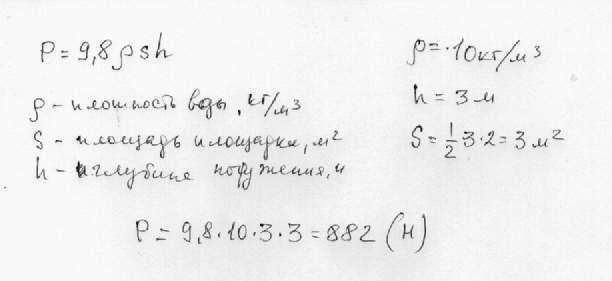 P = 9,8 ρsh
ρ – плотность воды, кг/м³
S – площадь площадки, м²
h – глубина погружения, м
ρ = ·10 кг/м³
h = 3 м
S = 1/2 3·2 = 3 м²
P = 9,8·10·3·3 = 882 (Н)